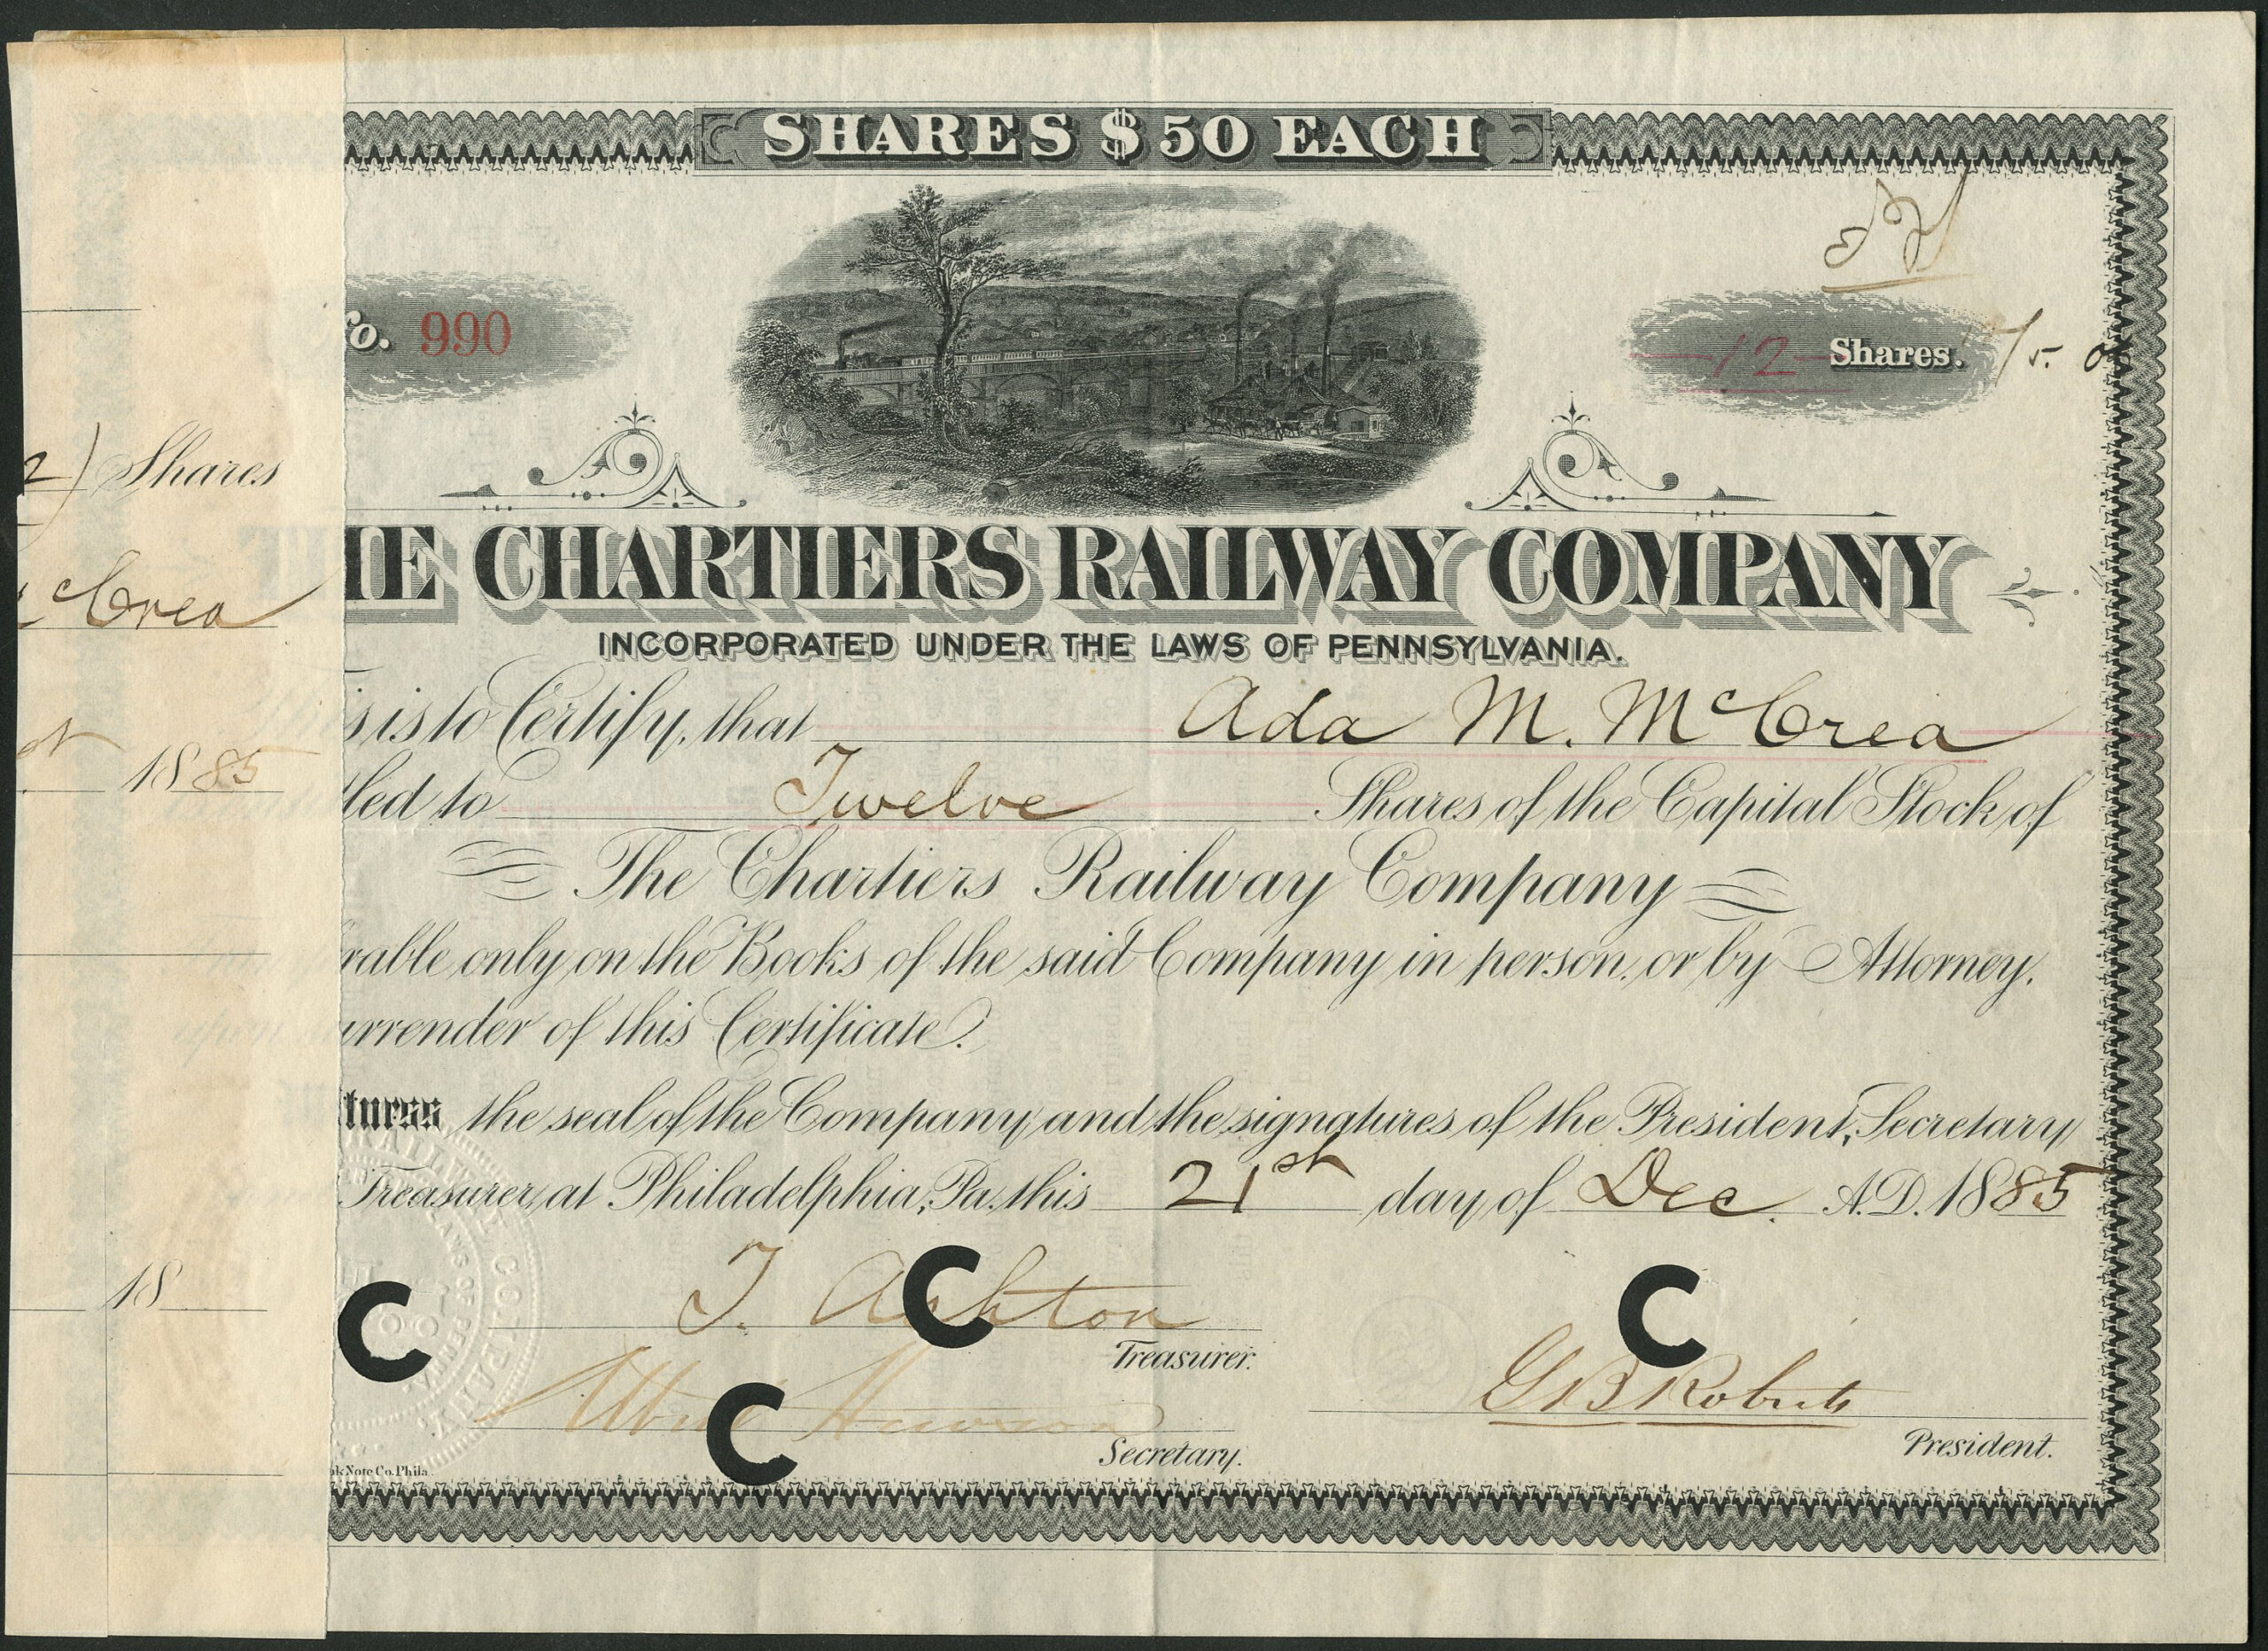 SHARES $50 EACH
o. 990
12 Shares.
2) Shares
cCrea
1885
18
HE CHARTIERS RAILWAY COMPANY
INCORPORATED UNDER THE LAWS OF PENNSYLVANIA.
s is to Certify, that Ada M. McCrea
tled to Twelve Shares of the Capital Stock of
The Chartiers Railway Company
rable only on the Books of the said Company in person, or by Attorney,
urrender of this Certificate.
tness the seal of the Company and the signatures of the President, Secretary
Treasurer, at Philadelphia, Pa. this 21st day of Dec. A.D. 1885
T. Ashton
Treasurer.
Secretary.
G B Roberts
President.
k Note Co. Phila.
C
C
C
C